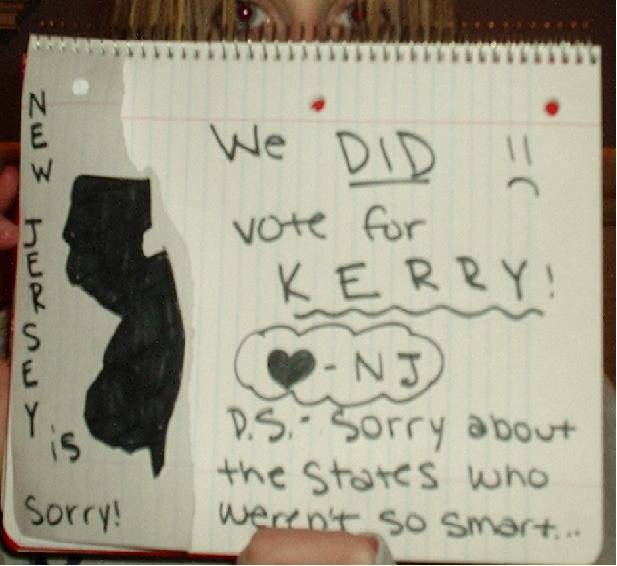 NEW JERSEY
is
sorry!
We DID
vote for
KERRY!
♥-NJ
P.S.- Sorry about
the states who
weren't so smart...